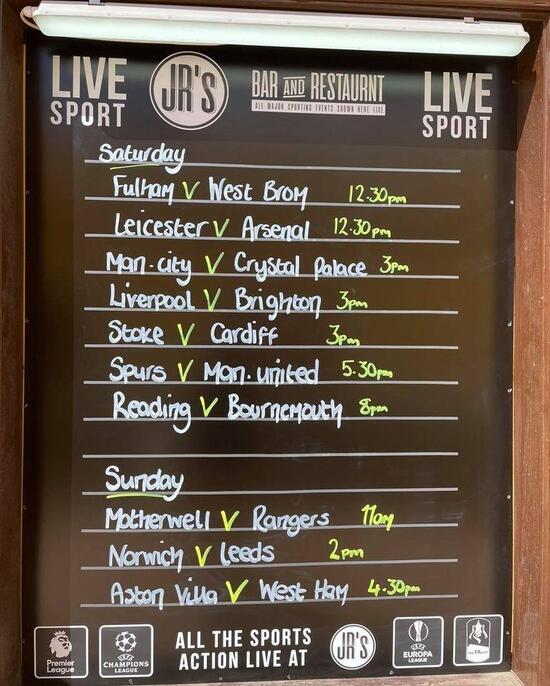 LIVE SPORT
JR'S
BAR AND RESTAURNT
ALL MAJOR SPORTING EVENTS SHOWN HERE LIVE
LIVE SPORT
Saturday
Fulham V West Brom 12.30pm
Leicester V Arsenal 12.30pm
Man.city V Crystal Palace 3pm
Liverpool V Brighton 3pm
Stoke V Cardiff 3pm
Spurs V Man.united 5.30pm
Reading V Bournemouth 8pm
Sunday
Motherwell V Rangers 11am
Norwich V Leeds 2pm
Aston Villa V West Ham 4.30pm
Premier League
CHAMPIONS LEAGUE
ALL THE SPORTS
ACTION LIVE AT
JR'S
EUROPA LEAGUE